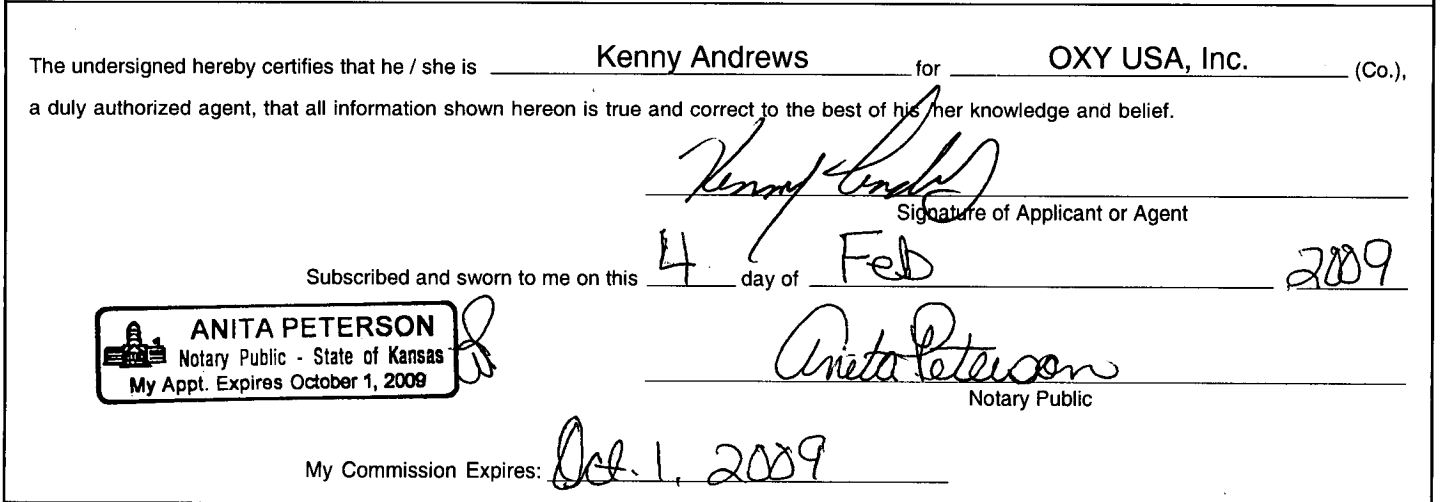 The undersigned hereby certifies that he / she is Kenny Andrews for OXY USA, Inc. (Co.),
a duly authorized agent, that all information shown hereon is true and correct to the best of his/her knowledge and belief.
Kenny Andrews
Signature of Applicant or Agent
Subscribed and sworn to me on this 4 day of Feb 2009
ANITA PETERSON
Notary Public - State of Kansas
My Appt. Expires October 1, 2009
Anita Peterson
Notary Public
My Commission Expires: Oct. 1, 2009